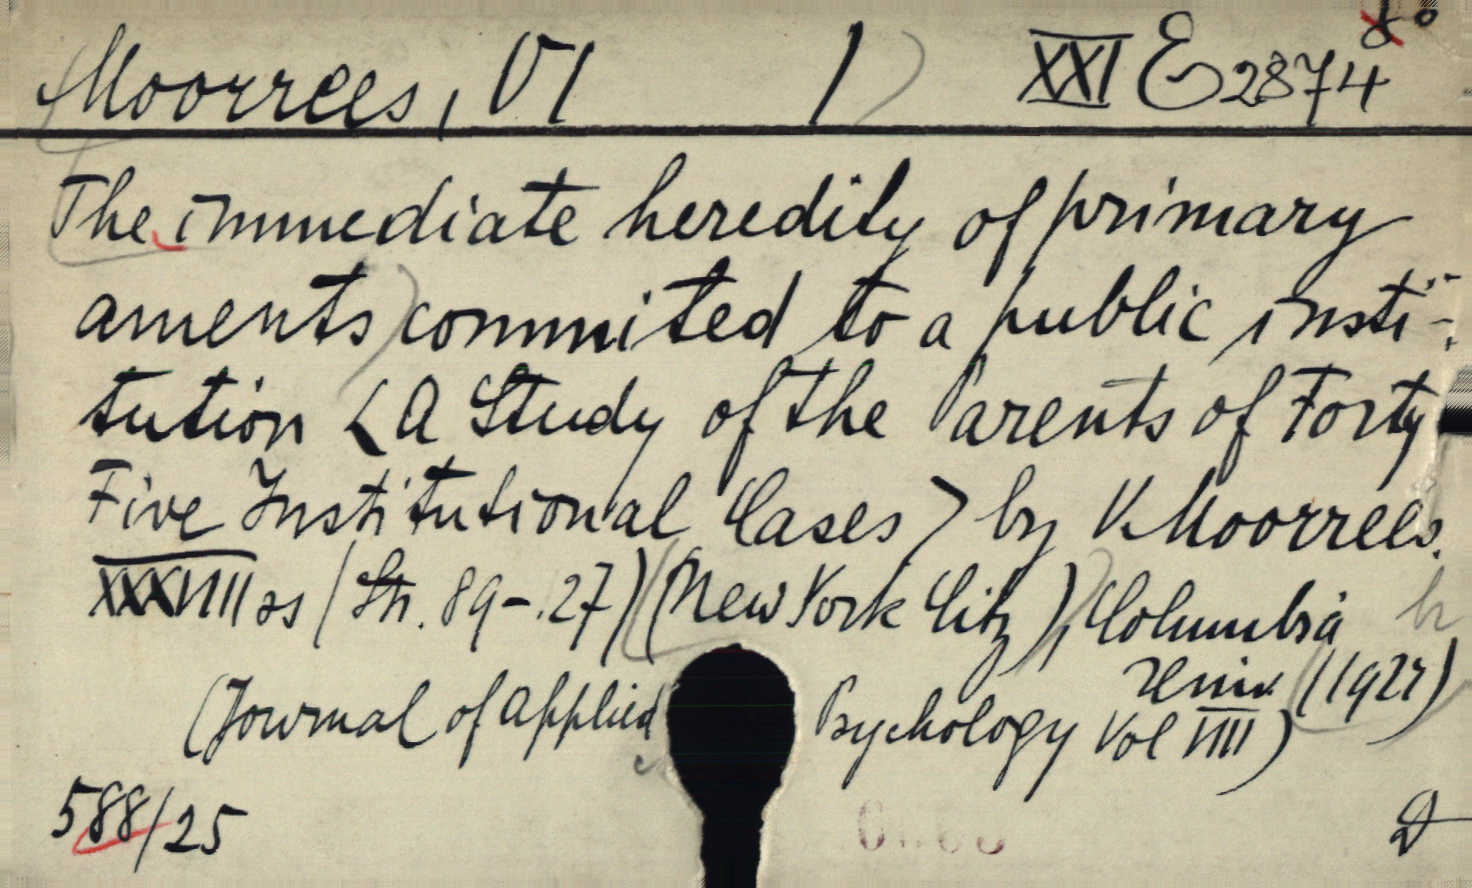 Moorrees, V1 1) XXI E 2874 8°
The immediate heredity of primary
aments commited to a public insti-
tution <A Study of the Parents of Forty
Five Institutional Cases> by V. Moorrees.
XXXVIIII ss (Str. 89-127) (New York City), Columbia
Univ. (192?)
(Journal of Applied Psychology Vol VIIII)
588/25 D